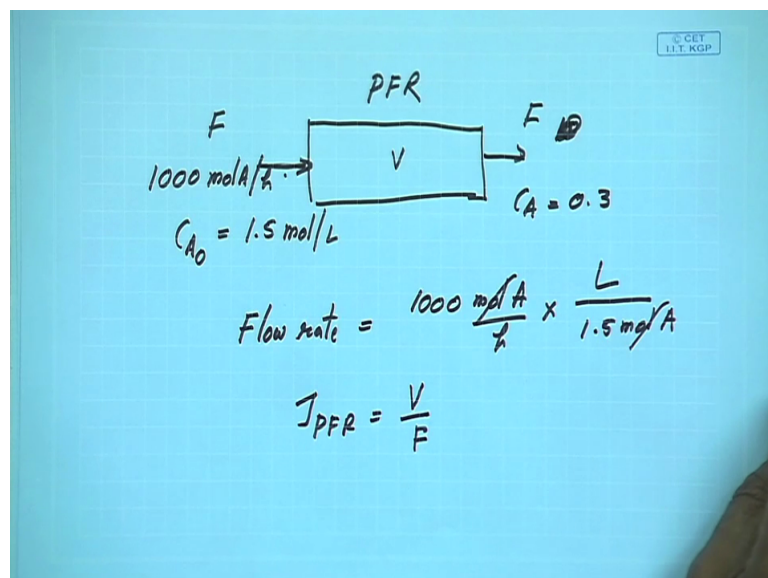 © CET
I.I.T. KGP
PFR
F
F
1000 molA/h.
V
C_A = 0.3
C_A0 = 1.5 mol/L
Flow rate = 1000 mol A/h × L/1.5 mol A
τ_PFR = V/F